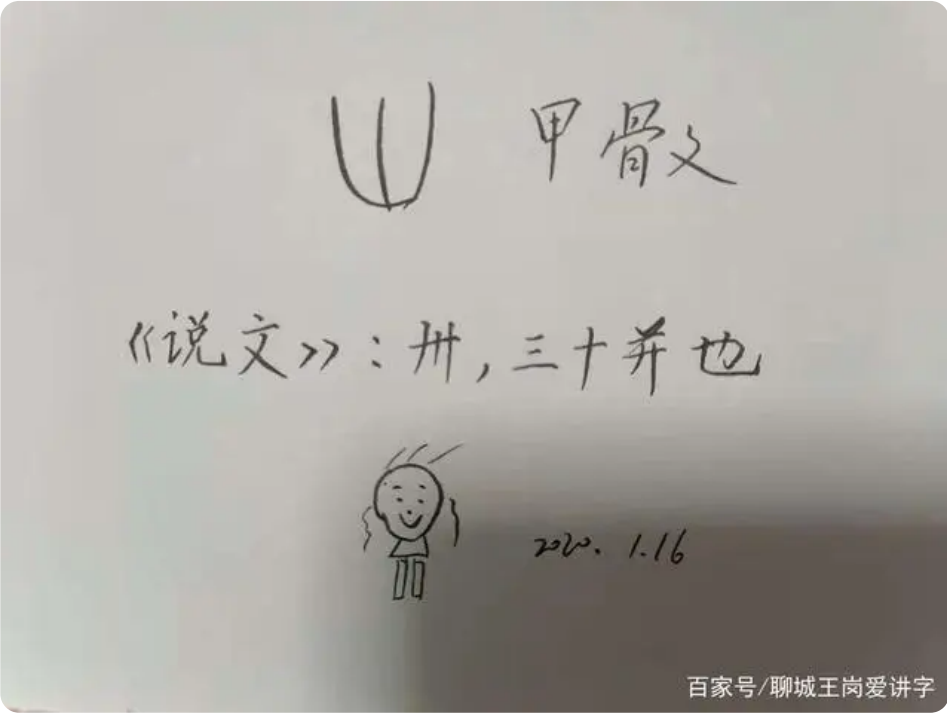 甲骨文
《说文》:卅,三十并也
2020.1.16
百家号/聊城王岗爱讲字